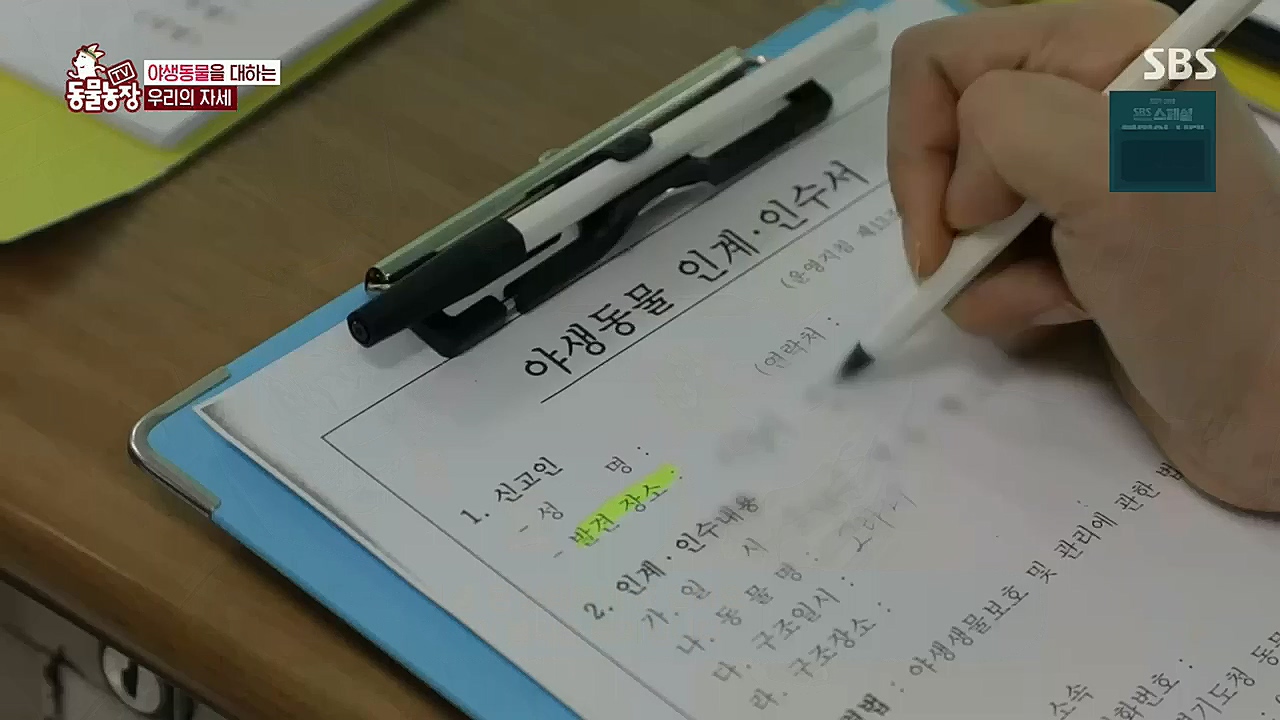 TV
동물농장
야생동물을 대하는
우리의 자세
SBS
SBS 스페셜
야생동물 인계·인수서
(운영지침 제13조
(연락처 :
1. 신고인
- 성 명 :
- 발견 장소 :
2. 인계·인수내용
가. 일 시 :
나. 동 물 명 : 고라니
다. 구조일시 :
라. 구조장소 :
법 : 야생생물보호 및 관리에 관한 법
소속
화번호 :
기도청 동물